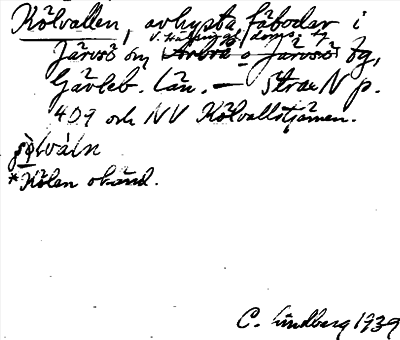 Kölvallen, avhysta fäbodar i
V. Hälsingl. doms. tg
Järvsö sn, Arbrå o Järvsö tg,
Gävleb. län. — Strax N p.
409 och NV Kölvallstjärnen.
*Kölen okänd.
C. Lindberg 1939